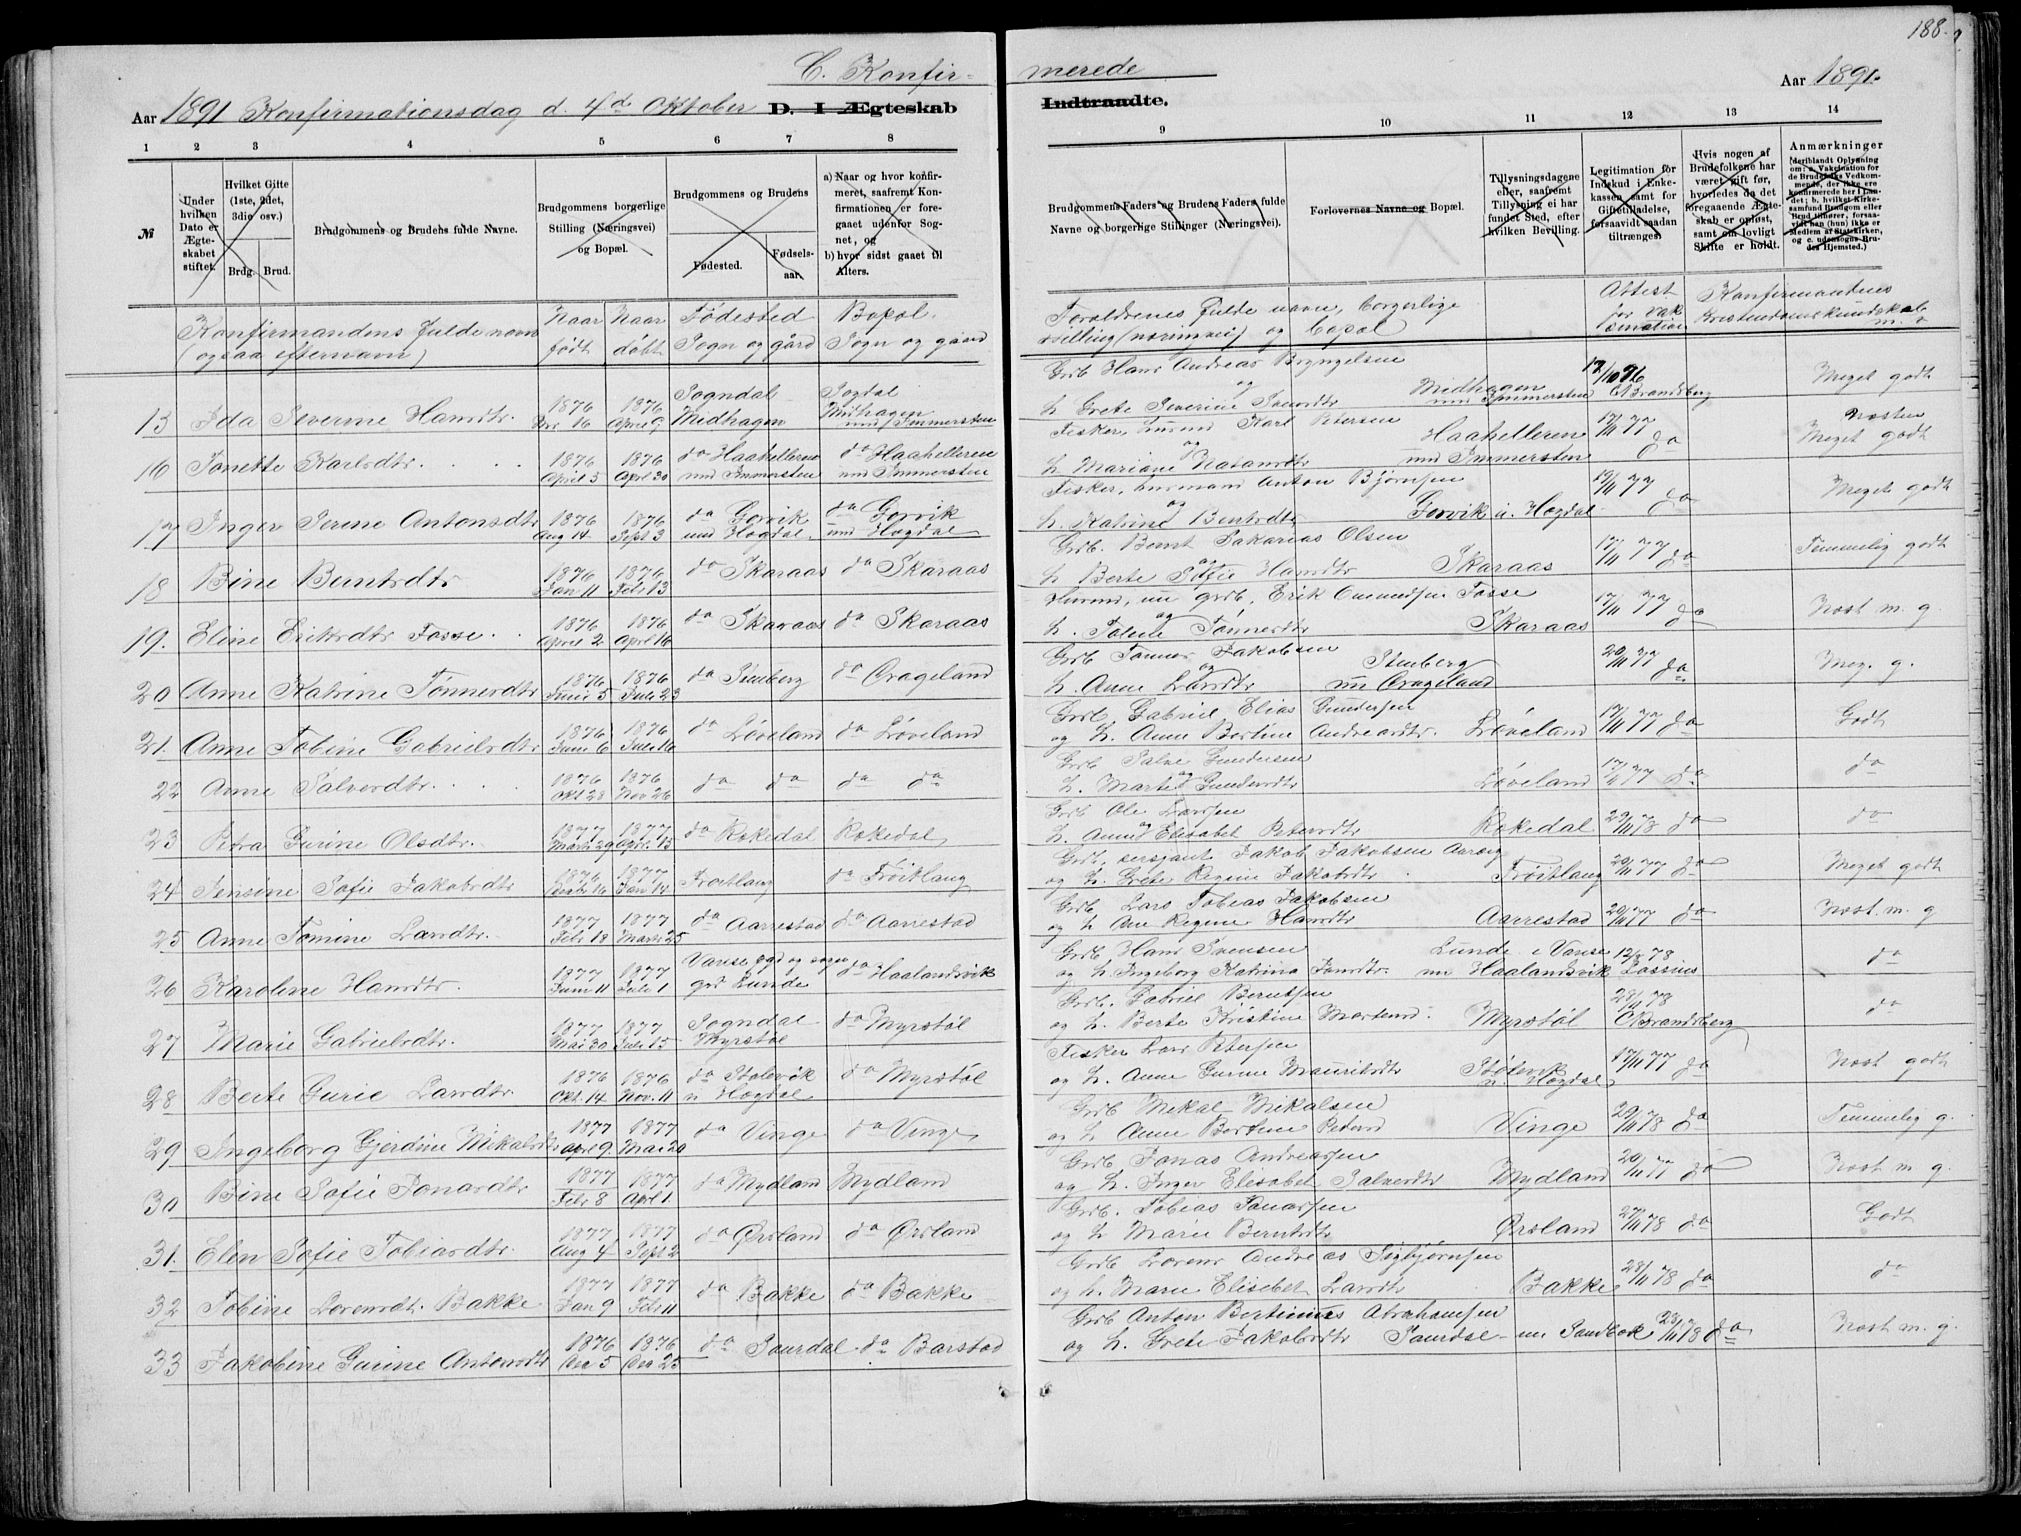 188.
C. Konfirmerede
Aar 1891 Konfirmationsdag d. 4d Oktober D. I Ægteskab Indtraadte. Aar 1891.
1 2 3 4 5 6 7 8 9 10 11 12 13 14
№
Under hvilken Dato er Ægteskabet stiftet.
Hvilket Gifte (1ste, 2det, 3die osv.)
Brdg. Brud.
Brudgommens og Brudens fulde Navne.
Brudgommens borgerlige Stilling (Næringsvei) og Bopæl.
Brudgommens og Brudens
Fødested. Fødselsaar.
a) Naar og hvor konfirmeret, saafremt Konfirmationen er foregaaet udenfor Sognet, og
b) hvor sidst gaaet til Alters.
Brudgommens Faders og Brudens Faders fulde Navne og borgerlige Stillinger (Næringsvei).
Forlovernes Navne og Bopæl.
Tillysningsdagene eller, saafremt Tillysning ei har fundet Sted, efter hvilken Bevilling.
Legitimation for Indskud i Enkekassen samt for Giftetilladelse, forsaavidt saadan tiltrænges.
Hvis nogen af Brudefolkene har været gift før, hvorledes da det foregaaende Ægteskab er opløst, samt om lovligt Skifte er holdt.
Anmærkninger (deriblandt Oplysning om: a. Vakcination for de Brudefolks Vedkommende, der ikke ere konfirmerede her i Landet; b. hvilket Kirkesamfund Brudgom eller Brud tilhører, forsaavidt han (hun) ikke er Medlem af Statskirken, og c. udensogns Brudes Hjemsted.)
Konfirmandens fulde navn (ogsaa efternavn)
Naar født
Naar døbt
Fødested Sogn og gård
Bopæl. Sogn og gaard
Forældrenes fulde navn, borgerlige stilling (næringsvei) og bopæl
Attest for vaksination
Konfirmandens kristendomskundskab m. v
13 Ida Severine Hansdtr. 1876 16 1876 April 9 Sogndal Midhagen Sogdal Midhagen und/ Immersten
Grb Hans Andreas Bryngelsen og h. Grete Severine Svensdtr Midhagen und Immersten 17/10 76 CBrandsberg Meget godt
16 Jonette Karlsdtr. 1876 April 5 1876 Aprl 30 da Haahelleren und Immersten da Haahelleren und Immersten
Fisker, husmd Karl Petersen og h Mariane Natansdtr Haahelleren und Immersten 17/11 77 da Næsten Meget godt
17 Inger Serine Antonsdtr 1876 Aug 14 1876 Sept 3 da Gorvik und Hogdal. da Gorvik und Hogdal
Fisker, husmand Anton Bjørnsen og h. Katrine Berntsdtr Gorvik u. Hogdal 19/11 77 da Meget godt
18 Bine Berntsdtr 1876 Jan 11 1876 Febr 13 da Skaraas da Skaraas
Grb. Bernt Sakarias Olsen og h Berte Sofie Hansdtr Skaraas 17/11 77 da Temmelig godt
19. Eline Eriksdtr Fosse. 1876 April 2 1876 April 16 da Skaraas da Skaraas
Husmd, nu grdb. Erik Osmundsen Fosse og h. Tønnesdtr Skaraas 17/11 77 da Næst m. g.
20 Anne Katrine Tønnesdtr 1876 Juni 5 1876 Juli 23 da Stenberg da Orageland
Grb Tønnes Jakobsen og h. Anne Larsdtr Stenberg nu Orageland 20/11 77 da Meg. g.
21. Anne Tobine Gabrielsdtr 1876 Juni 6 1876 Juli 16 da Løveland da Løveland
Grb. Gabriel Elias Gundersen og h. Anne Bertine Andreasdtr. Løveland 17/11 77 da Godt
22 Anne Salvesdtr. 1876 Okt 28 1876 Nov 26 da da da da
Grb Salve Gundersen og h. Marte Gundersdtr Løveland 17/11 77 da da
23 Petra Gurine Olsdtr. 1877 Marts 29 1877 Aprl. 15 da Rokedal Rokedal
Grb Ole Larssen og h. Anne Elisabet Petersdtr Rokedal 29/11 78 da da
24 Jensine Sofie Jakobsdtr 1876 Decbr 16 1877 Jan 14 Frøitlang da Frøitlang
Grb, sersjant Jakob Jakobsen Aarrey og h. Grete Regine Jakobsdtr Frøitlang 20/11 77 da Meget godt
25 Anne Tomine Larsdtr. 1877 Febr 18 1877 Marts 25 da Aarrestad da Aarrestad
Grb Lars Tobias Jakobsen og h Ane Regine Hansdtr Aarrestad 20/11 77 da Næst m. g
26 Karoline Hansdtr. 1877 Juni 11 1877 Juli 1 Vanse pgd og sogn grd Lunde da Haalandsvik
Grb Hans Svensen og h. Ingeborg Katrina Jansdtr. Lunde i Vanse nu Haalandsvik 12/8 78 Lassius da
27 Marie Gabrielsdtr. 1877 Mai 30 1877 Juli 15 Sogndal Myrstøl da Myrstøl
Grb. Gabriel Berntsen og h. Berte Kristine Mortensd. Myrstøl 28/11 78 CBrandsberg da
28 Berte Gurie Larsdtr. 1876 Okt. 14 1876 Nov. 11 da Stølevik u Hogdal da Myrstøl
Fisker Lars Petersen og h. Anne Gurine Mauritsdtr Stølevik u. Hogdal 17/11 77 da Næst godt
29 Ingeborg Gjerdine Mikalsdtr 1877 Aprl 9. 1877 Mai 20 da Vinge da Vinge
Grb Mekal Mikalsen og h Anne Bertine Petersd Vinge 29/11 78 da Temmelig g.
30 Bine Sofie Jonasdtr 1877 Febr 8 1877 Aprl 1. da Mydland Mydland
Grb Jonas Andreassen og h. Inger Elisabet Salvesdtr Mydland 20/11 77 da Næst m g.
31. Elen Sofie Tobiasdtr. 1877 Aug 4 1877 Sept 2 da Ørsland da Ørsland
Grb. Tobias Jonassen og h Marie Berntsdtr Ørsland 27/11 78 da Godt
32 Tobine Lorensdtr. Bakke 1877 Jan 9 1877 Febr 11 da Bakke da Bakke
Grb Lorens Andreas Sigbjørnsen og h. Marie Elisebet Larsdtr Bakke 28/11 78 da da
33 Jakobine Gurine Antonsdtr 1876 Dec 5 1876 Dec 25 da Saurdal. da Barstad
Grb Anton Bertinius Abrahamsen og h. Grete Jakobsdtr nu Sandbek 23/11 78 da Næst m. g.